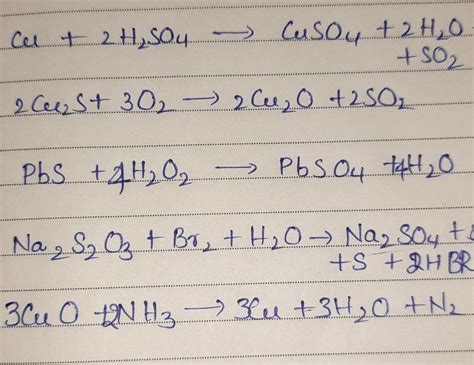 Cu + 2H₂SO₄ → CuSO₄ + 2H₂O
+ SO₂
2Cu₂S + 3O₂ → 2Cu₂O + 2SO₂
PbS + 4H₂O₂ → PbSO₄ + 4H₂O
Na₂S₂O₃ + Br₂ + H₂O → Na₂SO₄ +
+ S + 2HBR
3CuO + 2NH₃ → 3Cu + 3H₂O + N₂